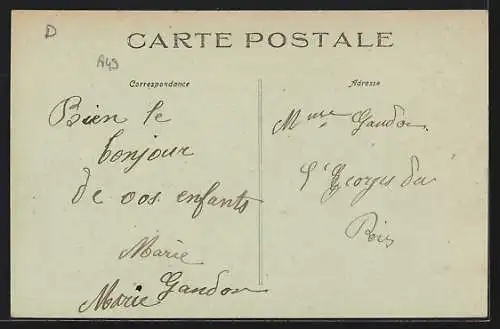 D
R49
CARTE POSTALE
Correspondance
Bien le
bonjour
de vos enfants
Marie
Marie Gandon
Adresse
Mme Gandon
St Georges du
Bois